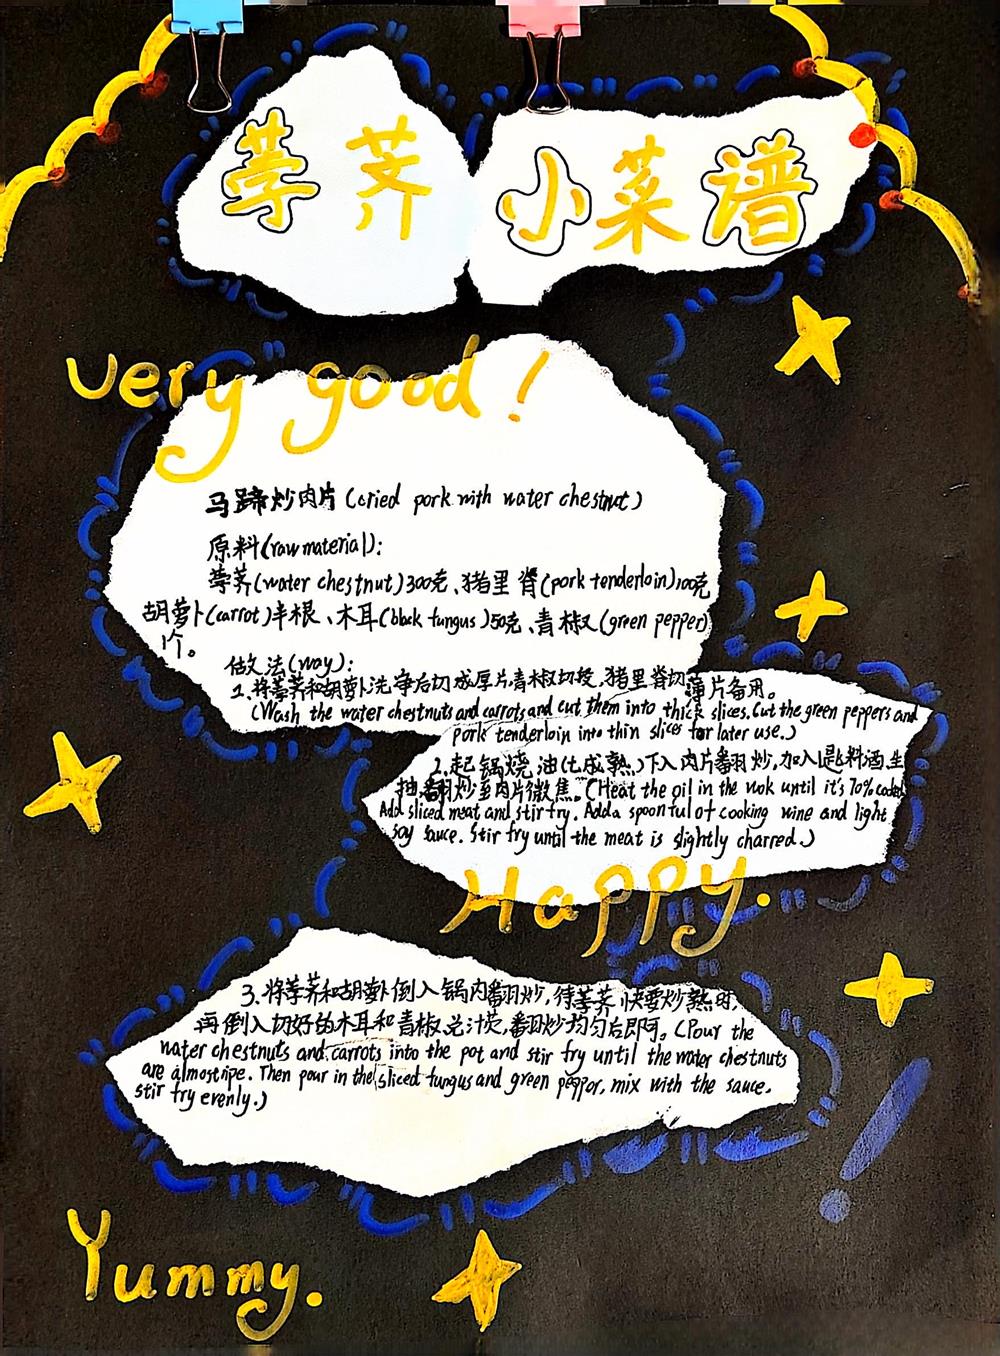 荸荠
小菜谱
very good!
马蹄炒肉片(cried pork with water chestnut)
原料(raw material):
荸荠(water chestnut)300克、猪里脊(pork tenderloin)100克
胡萝卜(carrot)半根、木耳(black fungus)50克、青椒(green pepper)
1个。
做法(way):
1.将荸荠和胡萝卜洗净后切成厚片青椒切段,猪里脊切薄片备用。
(Wash the water chestnuts and carrots and cut them into thick slices. Cut the green peppers and
pork tenderloin into thin slices for later use.)
2.起锅烧油(七成熟)下入肉片翻炒,加入一匙料酒,生
抽,翻炒至肉片微焦。(Heat the oil in the wok until it's 70% cooked
Add sliced meat and stir fry. Add a spoonful of cooking wine and light
soy sauce. Stir fry until the meat is slightly charred.)
Happy.
3.将荸荠和胡萝卜倒入锅内翻炒,待荸荠快要炒熟时,
再倒入切好的木耳和青椒,兑汁芡,翻炒均匀后即可。(Pour the
water chestnuts and carrots into the pot and stir fry until the water chestnuts
are almost ripe. Then pour in the sliced fungus and green pepper, mix with the sauce.
stir fry evenly.)
!
Yummy.